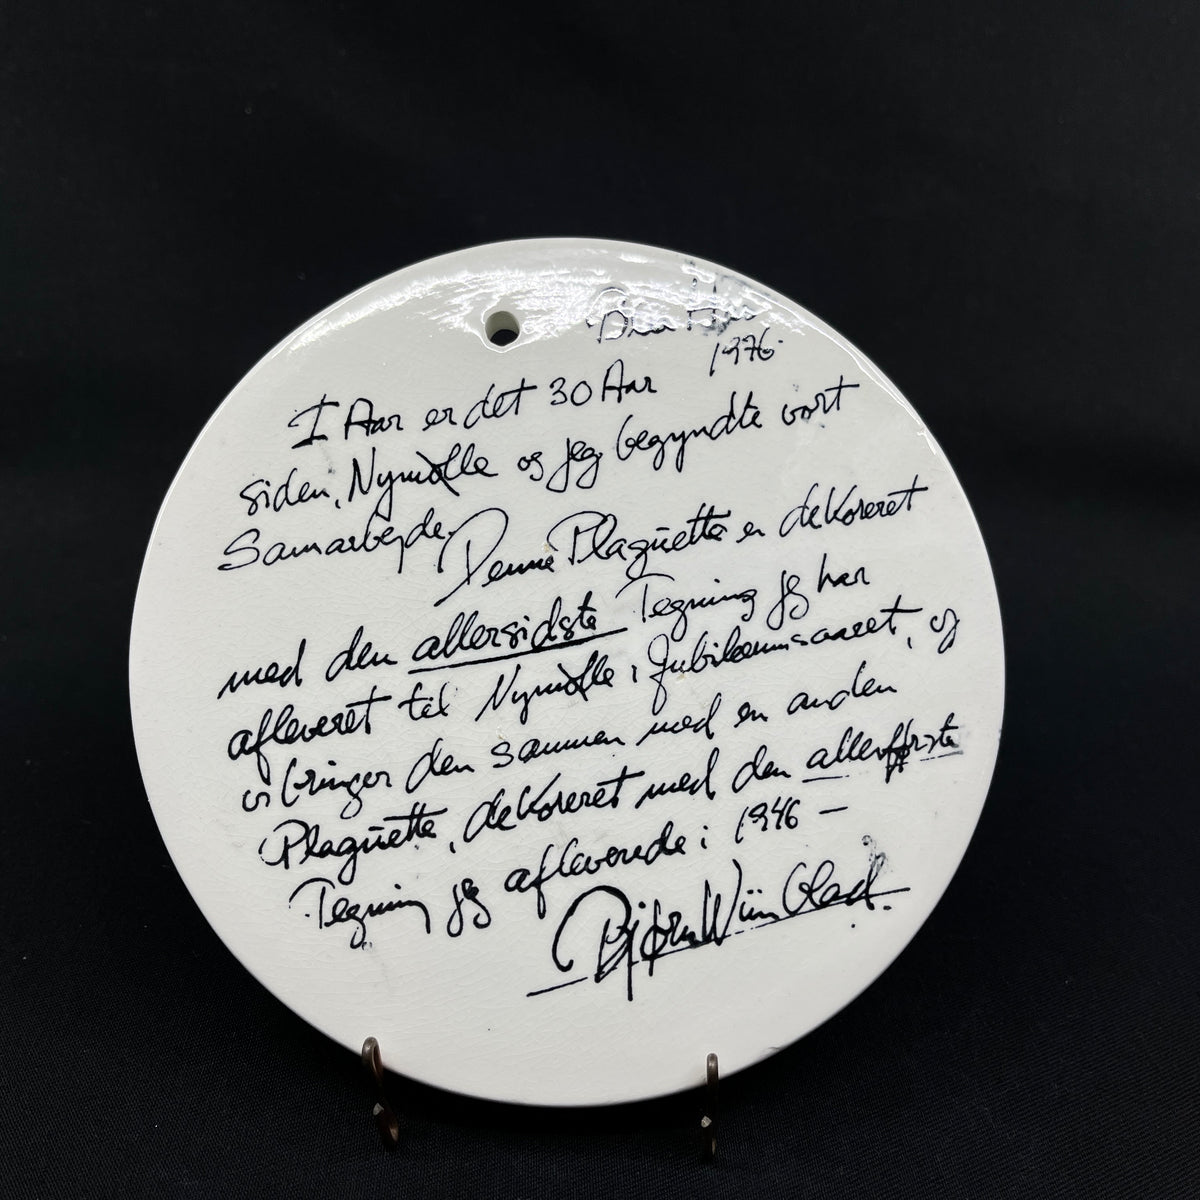 Blaa Hus
1976.
I Aar er det 30 Aar
siden, Nymølle og jeg begyndte vort
Samarbejde.
Denne Plaquette er dekoreret
med den allersidste Tegning jeg har
afleveret til Nymølle i Jubilæumsaaret, og
vi bringer den sammen med en anden
Plaquette, dekoreret med den allerførste
Tegning jeg afleverede i 1946 —
Bjørn Wiinblad.